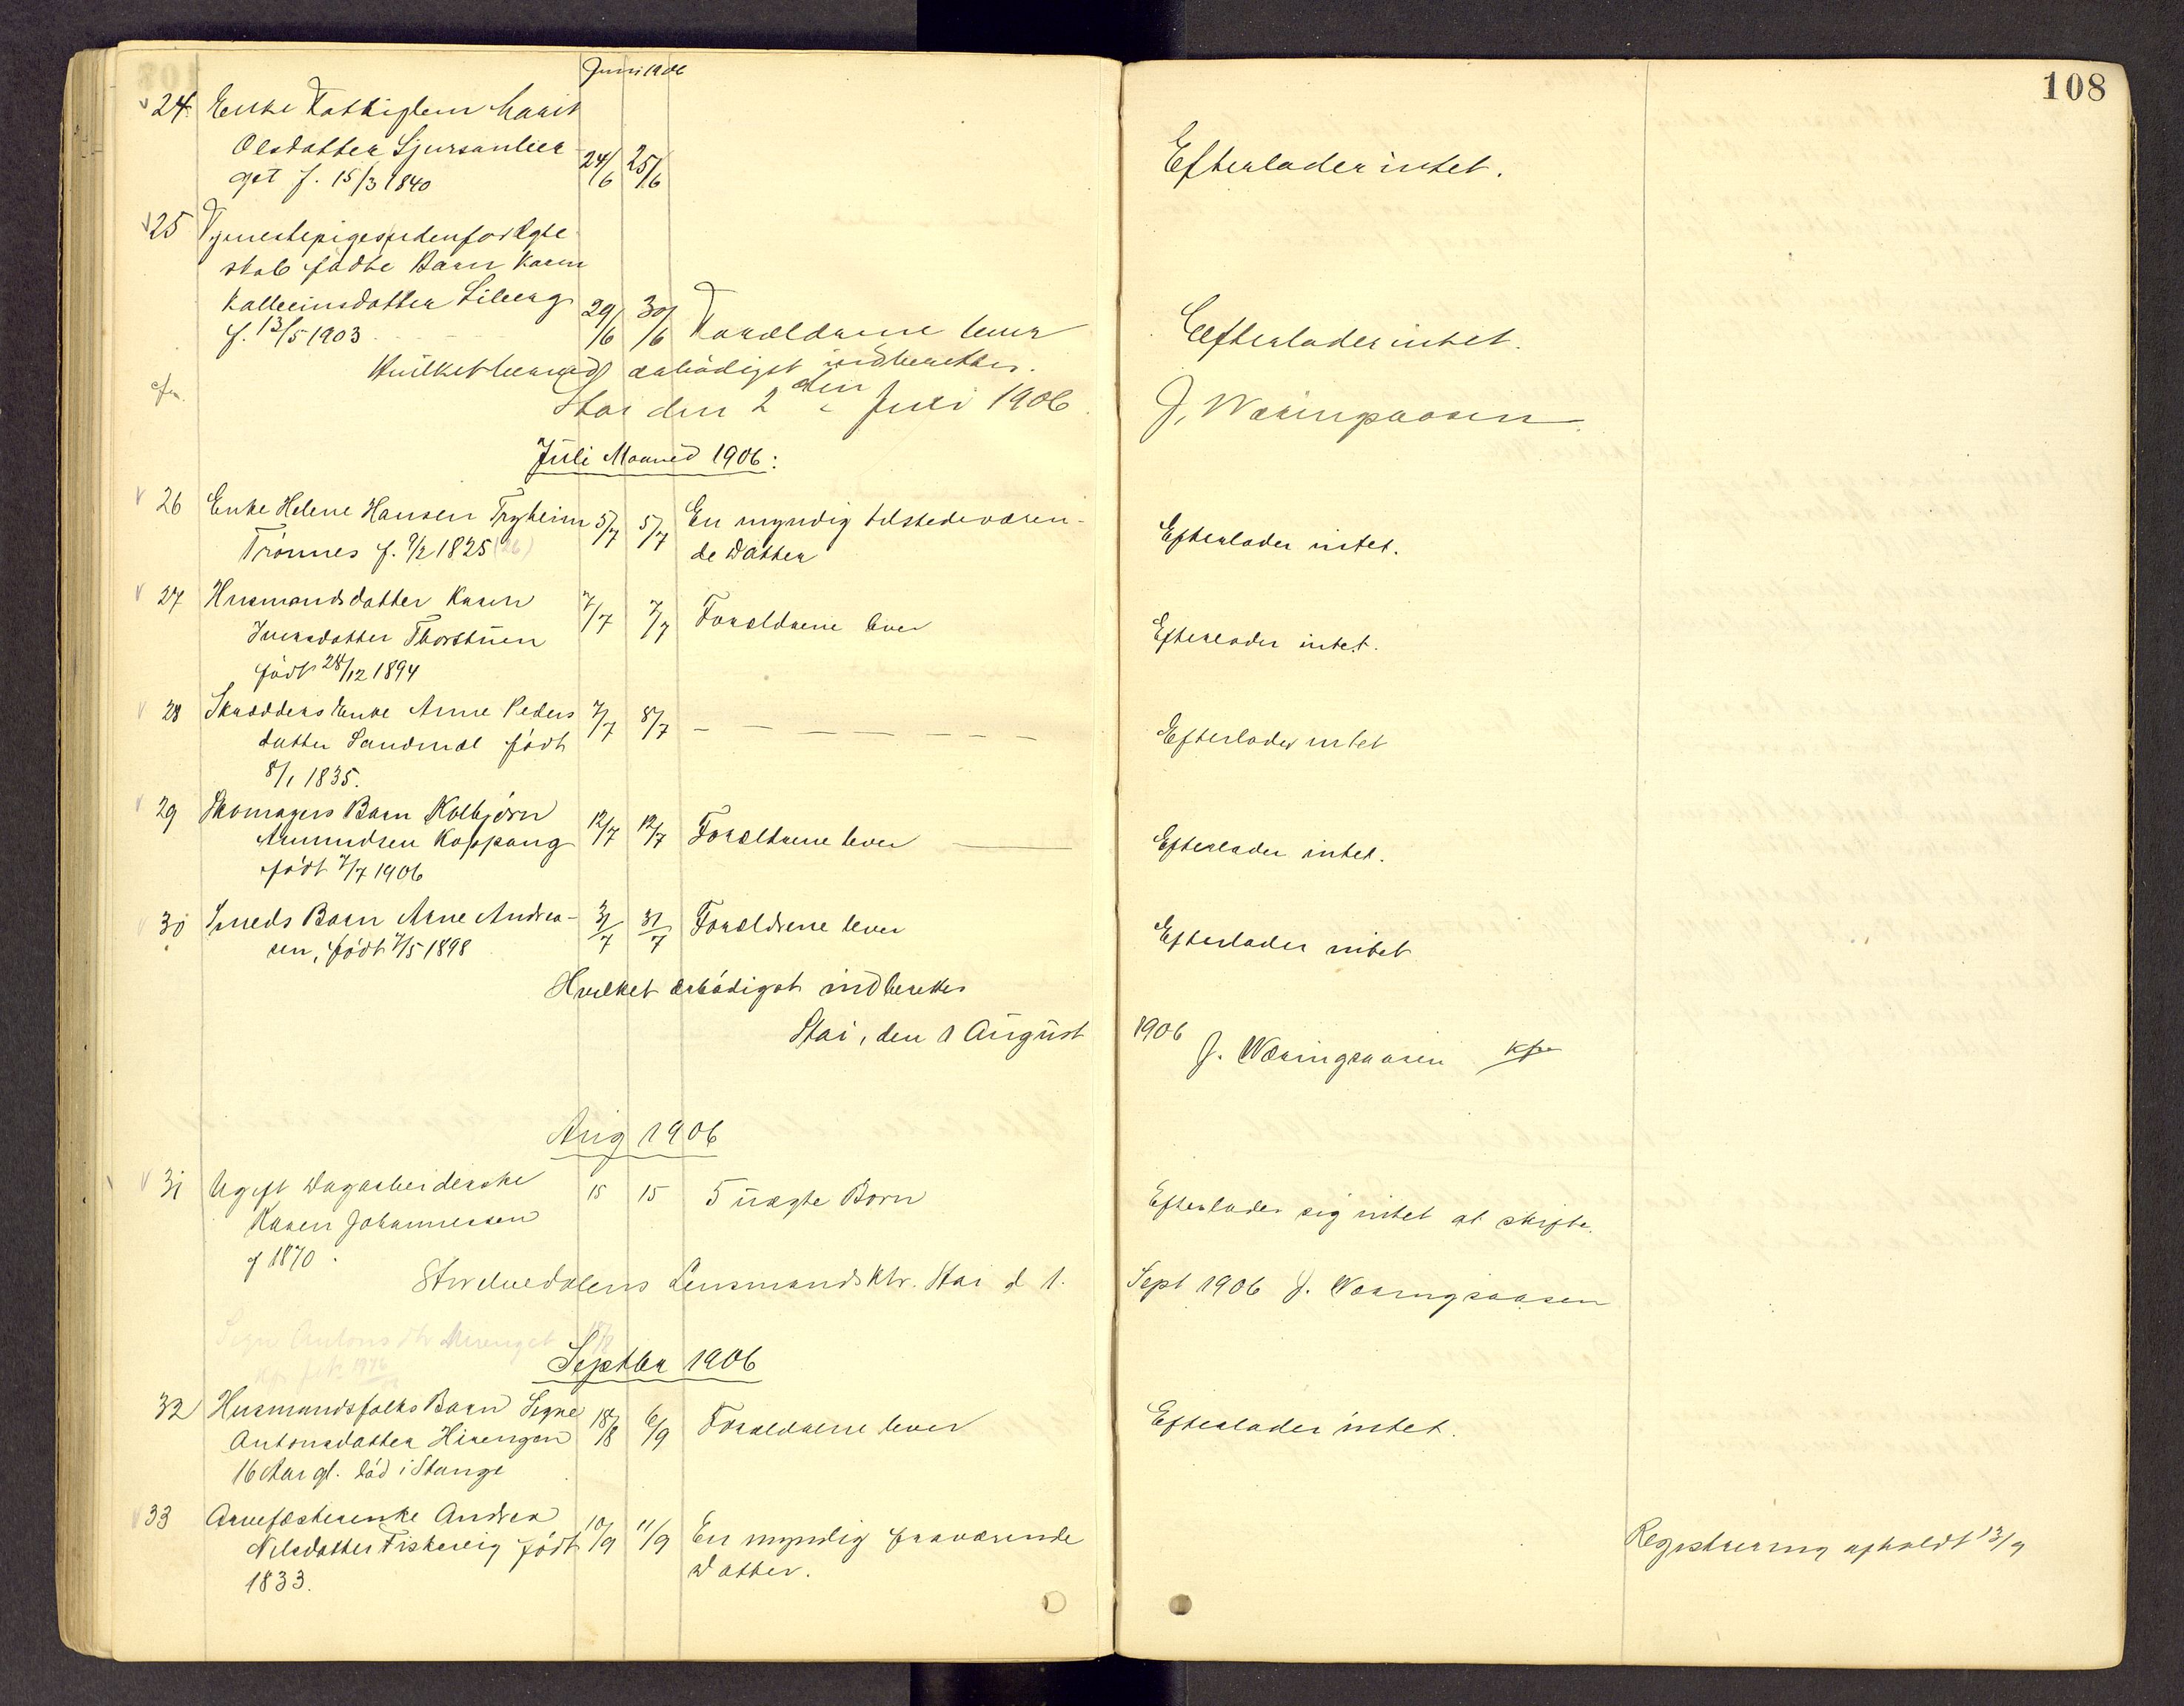 108
Juni 1906
24 Enke Fattiglem Marit
Olsdatter Sjursanber
get f. 15/3 1840 24/6 25/6 Efterlader intet.
25 Tjenestepiges udenforægte
skab fødte Barn Karen
Kalleinsdatter Liberg
f. 13/5 1903 29/6 30/6 Forældrene lever Efterlader intet.
Hvilket herved ærbødigst indberettes.
Stai den 2den Juli 1906 J. Væringsaasen
Juli Maaned 1906:
26 Enke Helene Hansen Trykeim 5/7 5/7 En myndig tilstedeværen-
Trønnes f. 9/2 1825 (26) de Datter Efterlader intet.
27 Husmandsdatter Karen 7/7 7/7 Forældrene lever
Iversdatter Thorstuen Efterlader intet.
født 28/12 1894
28 Skrædders Enke Anne Peders 7/7 8/7 — — — — — — —
datter Sandmæl født Efterlader intet
8/1 1835.
29 Skomagers Barn Kolbjørn
Amundsen Koppang 12/7 12/7 Forældrene lever Efterlader intet.
født 7/7 1906
30 Smeds Barn Arne Andrea- 31/7 31/7 Forældrene lever
sen, født 7/5 1898 Efterlader intet
Hvilket ærbødigst indberettes
Stai, den 1 August 1906 J. Væringsaasen
Aug 1906
31 Ugift Dagarbeiderske 15 15 5 uægte Børn
Karen Johannessen Efterlader sig intet at skifte.
f 1870.
Storelvedalens Lensmandsktr. Stai d 1. Sept 1906 J. Væringsaasen
Signe Antons dtr
Septbr 1906
32 Husmandsfolks Barn Signe 18/8 6/9 Forældrene lever Efterlader intet.
Antonsdatter Hirengen
16 Aar gl. død i Stange
33 Arvefæsterenke Andrea
Nilsdatter Fiskevig født 10/9 11/9 En myndig fraværende Registrering afholdt 13/9
1833. Datter.